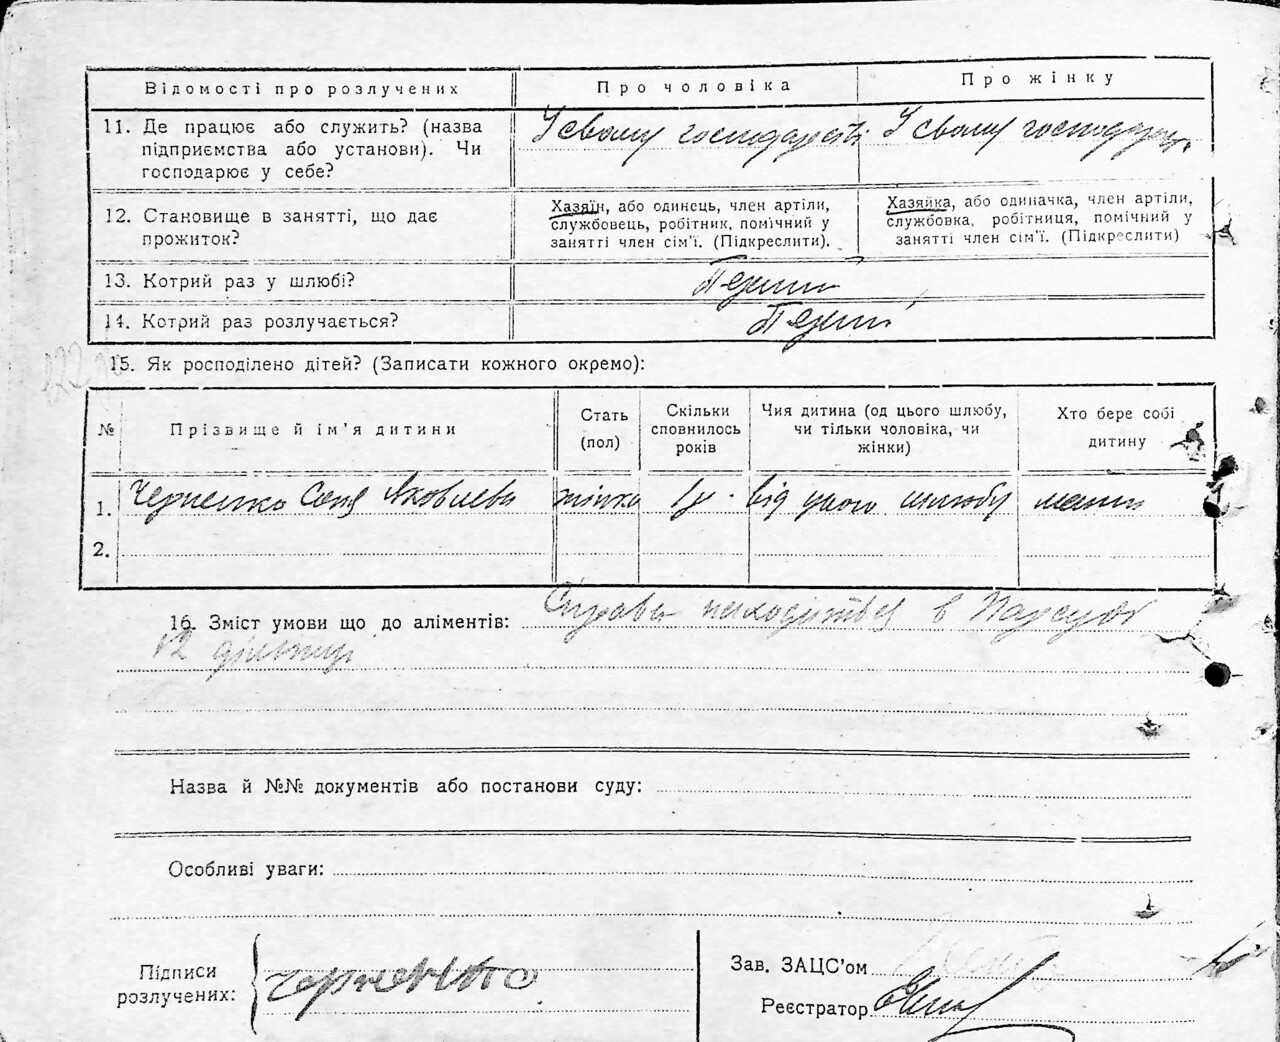 Відомості про розлучених
Про чоловіка
Про жінку
11. Де працює або служить? (назва
підприємства або установи). Чи
господарює у себе?
У свому господарстві
У свому господарст
12. Становище в занятті, що дає
прожиток?
Хазяїн, або одинець, член артілі,
службовець, робітник, помічний у
занятті член сім'ї. (Підкреслити).
Хазяйка, або одиначка, член артілі,
службовка, робітниця, помічний у
занятті член сім'ї. (Підкреслити)
13. Котрий раз у шлюбі?
14. Котрий раз розлучається?
15. Як росподілено дітей? (Записати кожного окремо):
№
Прізвище й ім'я дитини
Стать
(пол)
Скільки
сповнилось
років
Чия дитина (од цього шлюбу,
чи тільки чоловіка, чи
жінки)
Хто бере собі
дитину
1. Черненко Соня Яковлева жінка 1 р. від цього шлюбу мати
2.
16. Зміст умови що до аліментів: Справа находиться в Нарсуді
12 дільниці
Назва й №№ документів або постанови суду:
Особливі уваги:
Підписи
розлучених:
Черненко
Зав. ЗАЦС'ом
Реєстратор